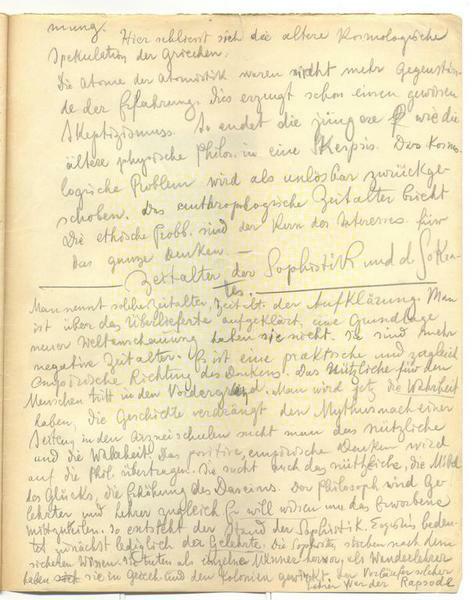 mung. Hier schliesst sich die ältere Kosmologische
Spekulation der Griechen.
Die Atome der Atomistik waren nicht mehr Gegenstän-
de der Erfahrung. Dies erzeugt schon einen gewissen
Skeptizismus. So endet die jüngere wie die
ältere physische Philos. in eine Skepsis. Das Kosmo-
logische Problem wird als unlösbar zurückge-
schoben. Das anthropologische Zeitalter bricht
Die ethische Probl. sind der Kern des Interesses für
das ganze Denken. —
Zeitalter der Sophistik und d. Sokra-
tes.
Man nennt solche Zeitalter, Zeitalt. der Aufklärung. Man
ist über das Überlieferte aufgeklärt, eine Grundlage
neuer Weltanschauung haben sie nicht. Es sind mehr
negative Zeitalter. Es ist eine praktische und zugleich
empirische Richtung des Denkens. Das Nützliche für den
Menschen tritt in den Vordergrund. Man will jetz die Wahrheit
haben, die Geschichte verdrängt den Mythus nach einer
in den Arzneischulen sucht man das nützliche
und die Wahrheit. Das positive, empirische Denken wird
auf die Phil. übertragen. Sie sucht auch das nützliche, die Mittel
des Glücks, die Erhöhung des Daseins. Der Philosoph wird Ge-
lehrter und Lehrer zugleich. Er will wissen um das Erworbene
mitzuteilen. So entsteht der Stand der Sophistik. bedeu-
tet zunächst lediglich der Gelehrte. Die Sophisten suchen nach dem
sicheren Wissen. Sie treten als einzelne Männer hervor, als Wanderlehrer
haben sie in Griech. und den Kolonien gewirkt. Der Vorläufer solcher
Lehrer war der Rapsode